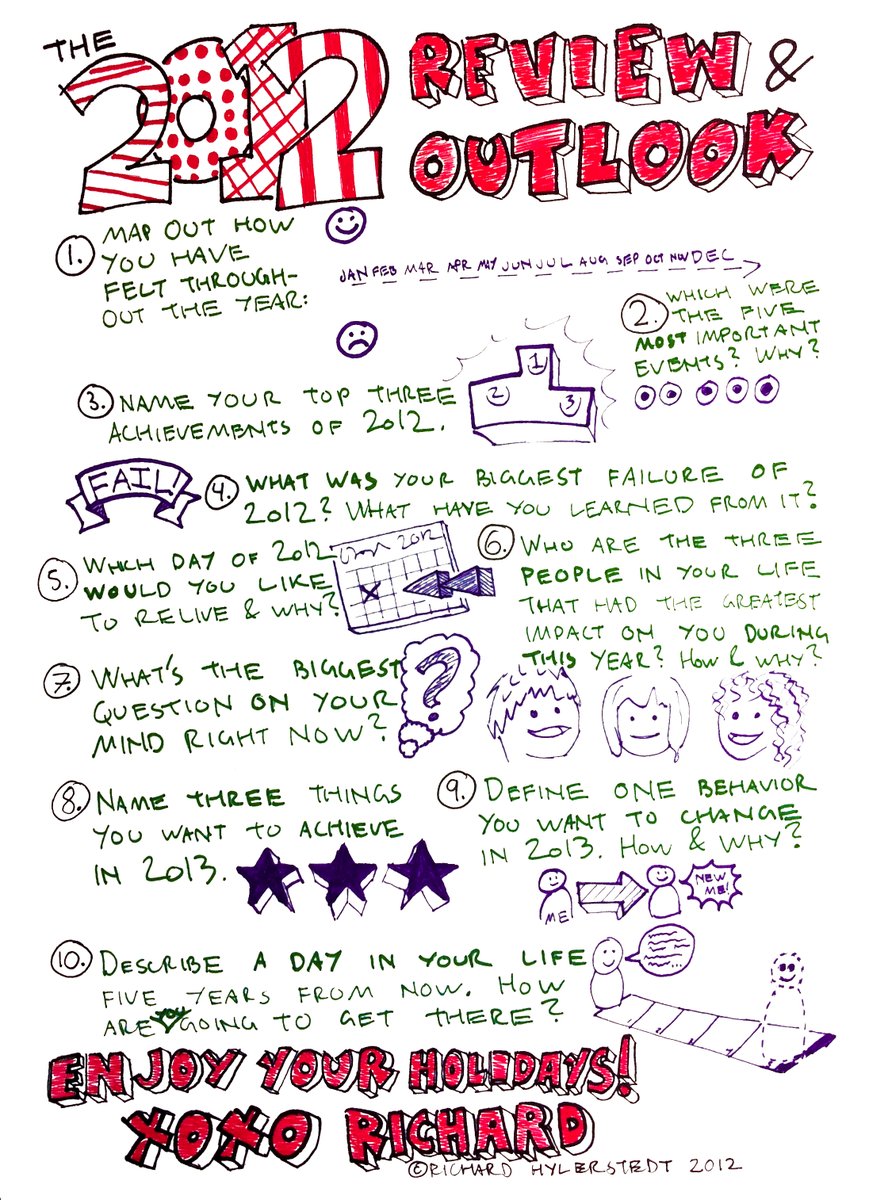 THE
2012
REVIEW &
OUTLOOK
1. MAP OUT HOW
YOU HAVE
FELT THROUGH-
OUT THE YEAR:
JAN FEB MAR APR MAY JUN JUL AUG SEP OCT NOV DEC
2. WHICH WERE
THE FIVE
MOST IMPORTANT
EVENTS? WHY?
3. NAME YOUR TOP THREE
ACHIEVEMENTS OF 2012.
1
2
3
FAIL!
4. WHAT WAS YOUR BIGGEST FAILURE OF
2012? WHAT HAVE YOU LEARNED FROM IT?
5. WHICH DAY OF 2012
WOULD YOU LIKE
TO RELIVE & WHY?
2012
6. WHO ARE THE THREE
PEOPLE IN YOUR LIFE
THAT HAD THE GREATEST
IMPACT ON YOU DURING
THIS YEAR? HOW & WHY?
7. WHAT'S THE BIGGEST
QUESTION ON YOUR
MIND RIGHT NOW?
?
8. NAME THREE THINGS
YOU WANT TO ACHIEVE
IN 2013.
9. DEFINE ONE BEHAVIOR
YOU WANT TO CHANGE
IN 2013. HOW & WHY?
ME
NEW
ME!
10. DESCRIBE A DAY IN YOUR LIFE
FIVE YEARS FROM NOW. HOW
ARE YOU GOING TO GET THERE?
ENJOY YOUR HOLIDAYS!
XOXO RICHARD
©RICHARD HYLERSTEDT 2012